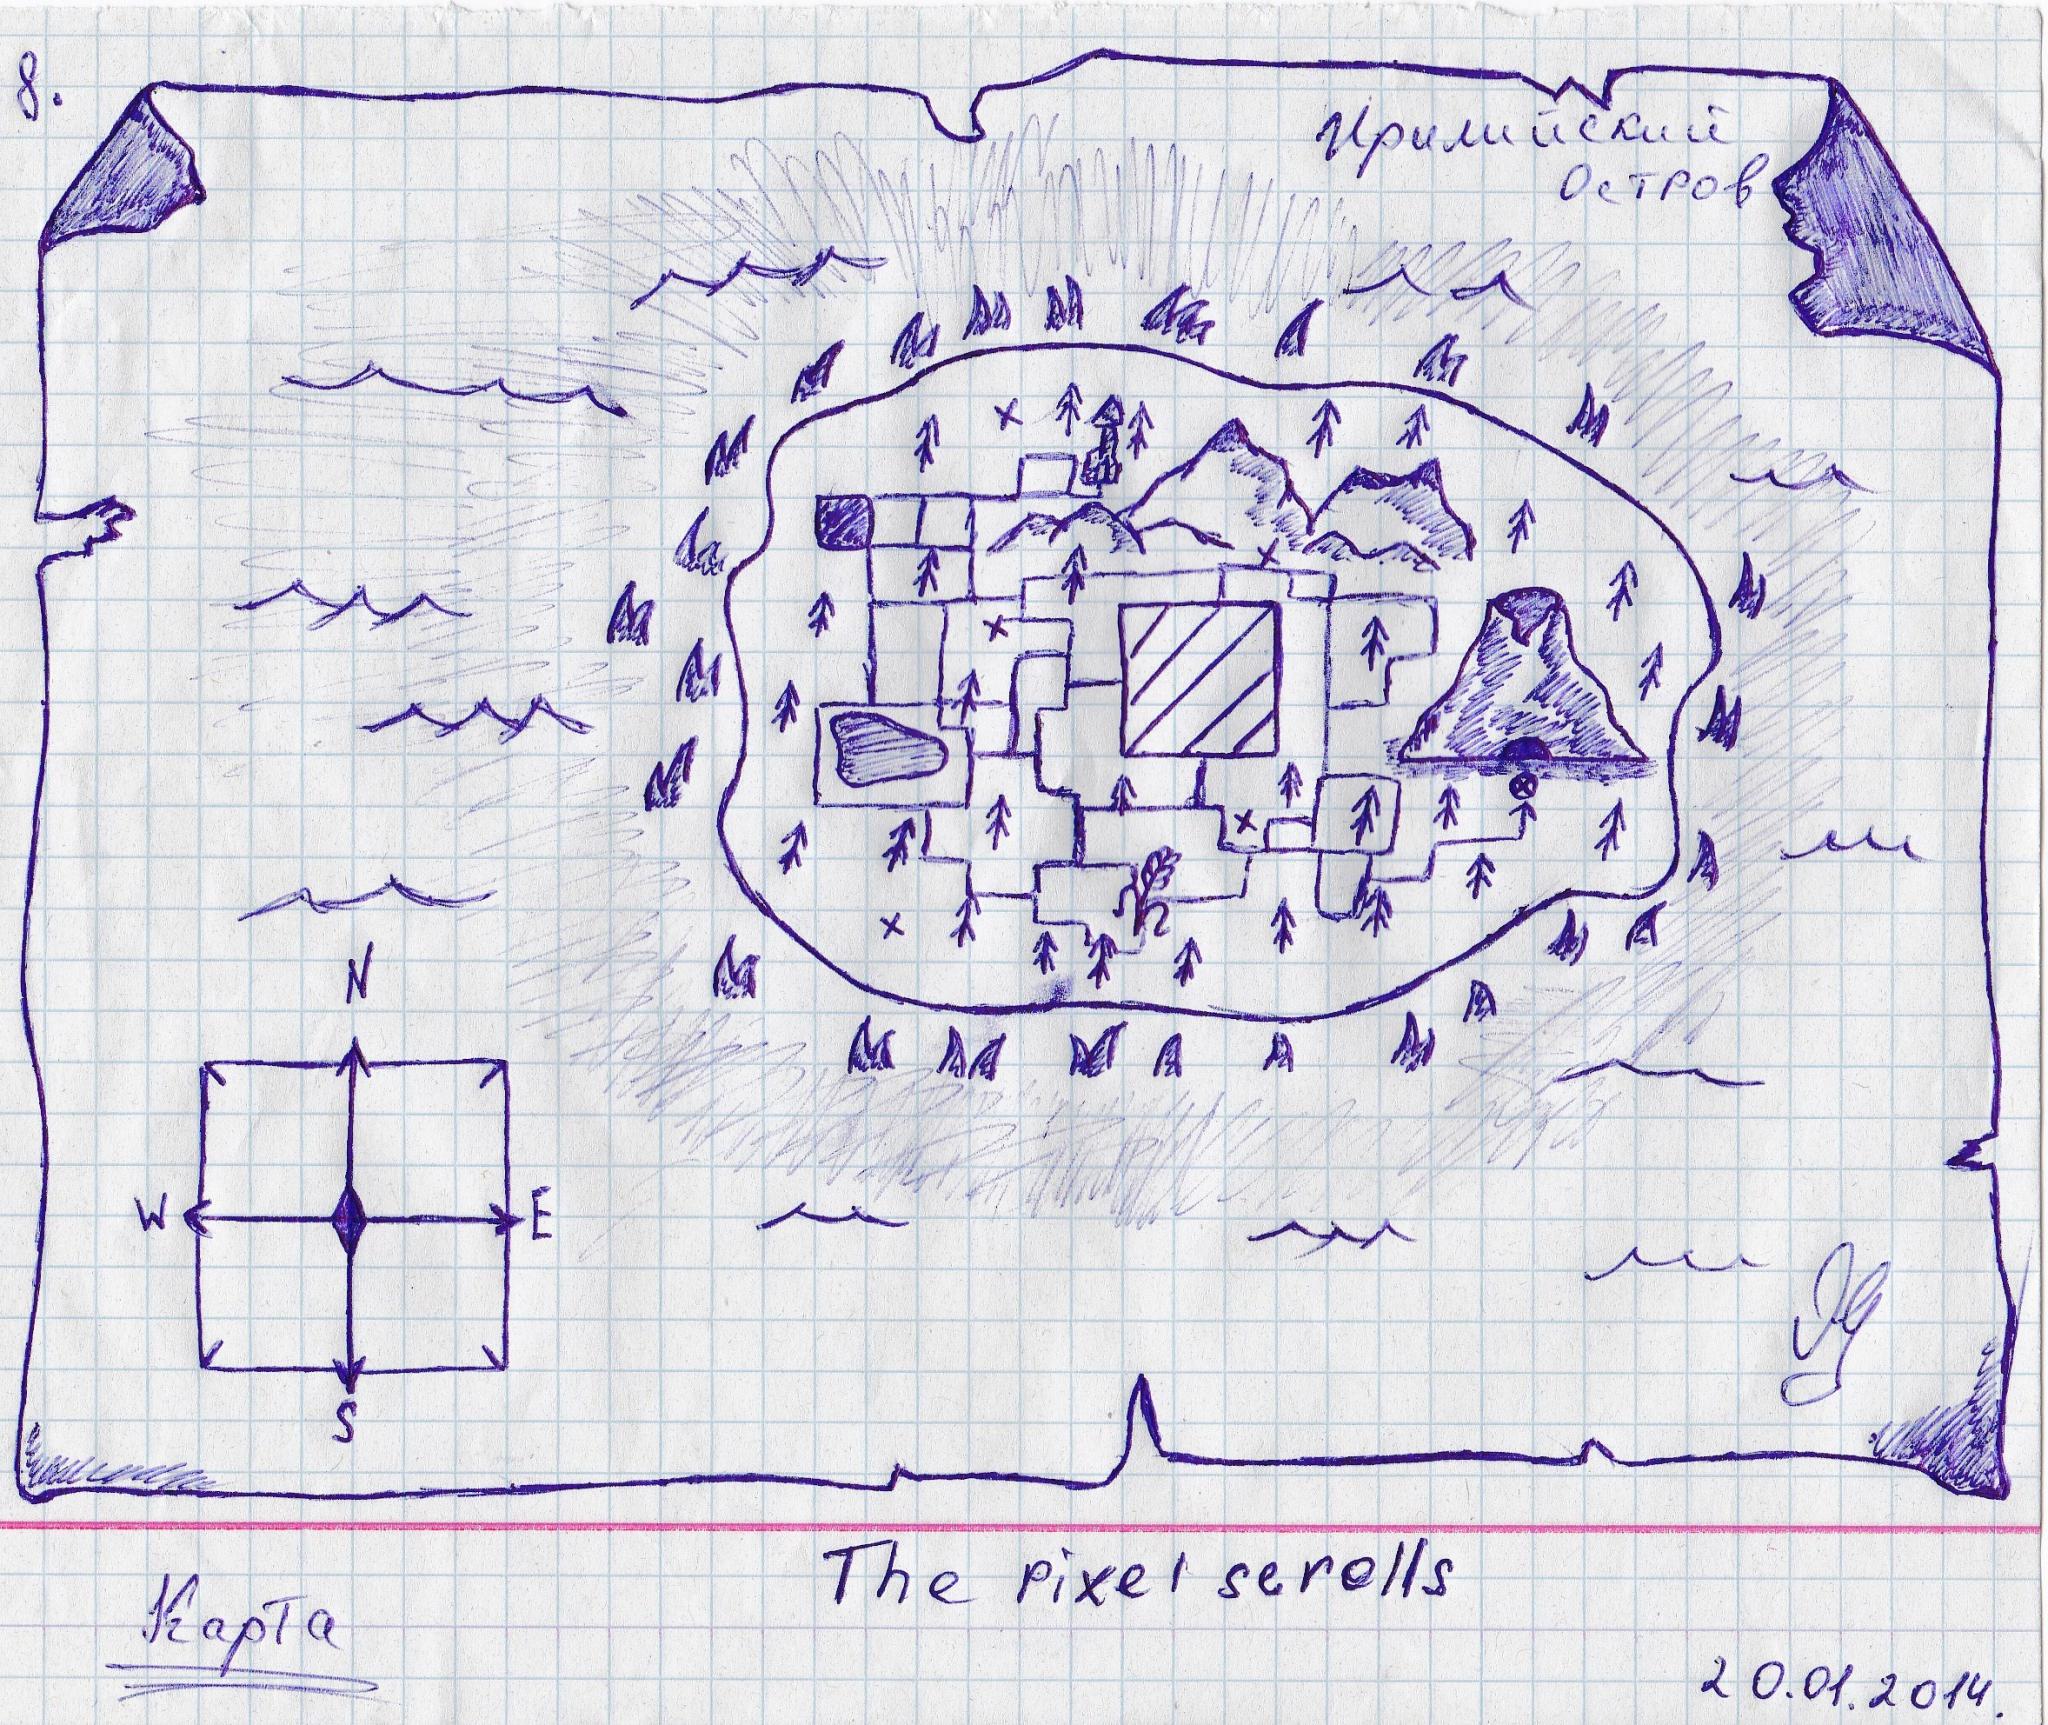 8.
Ирилийский
Остров
N
W E
S
The pixel scrolls
Карта
20.01.2014.